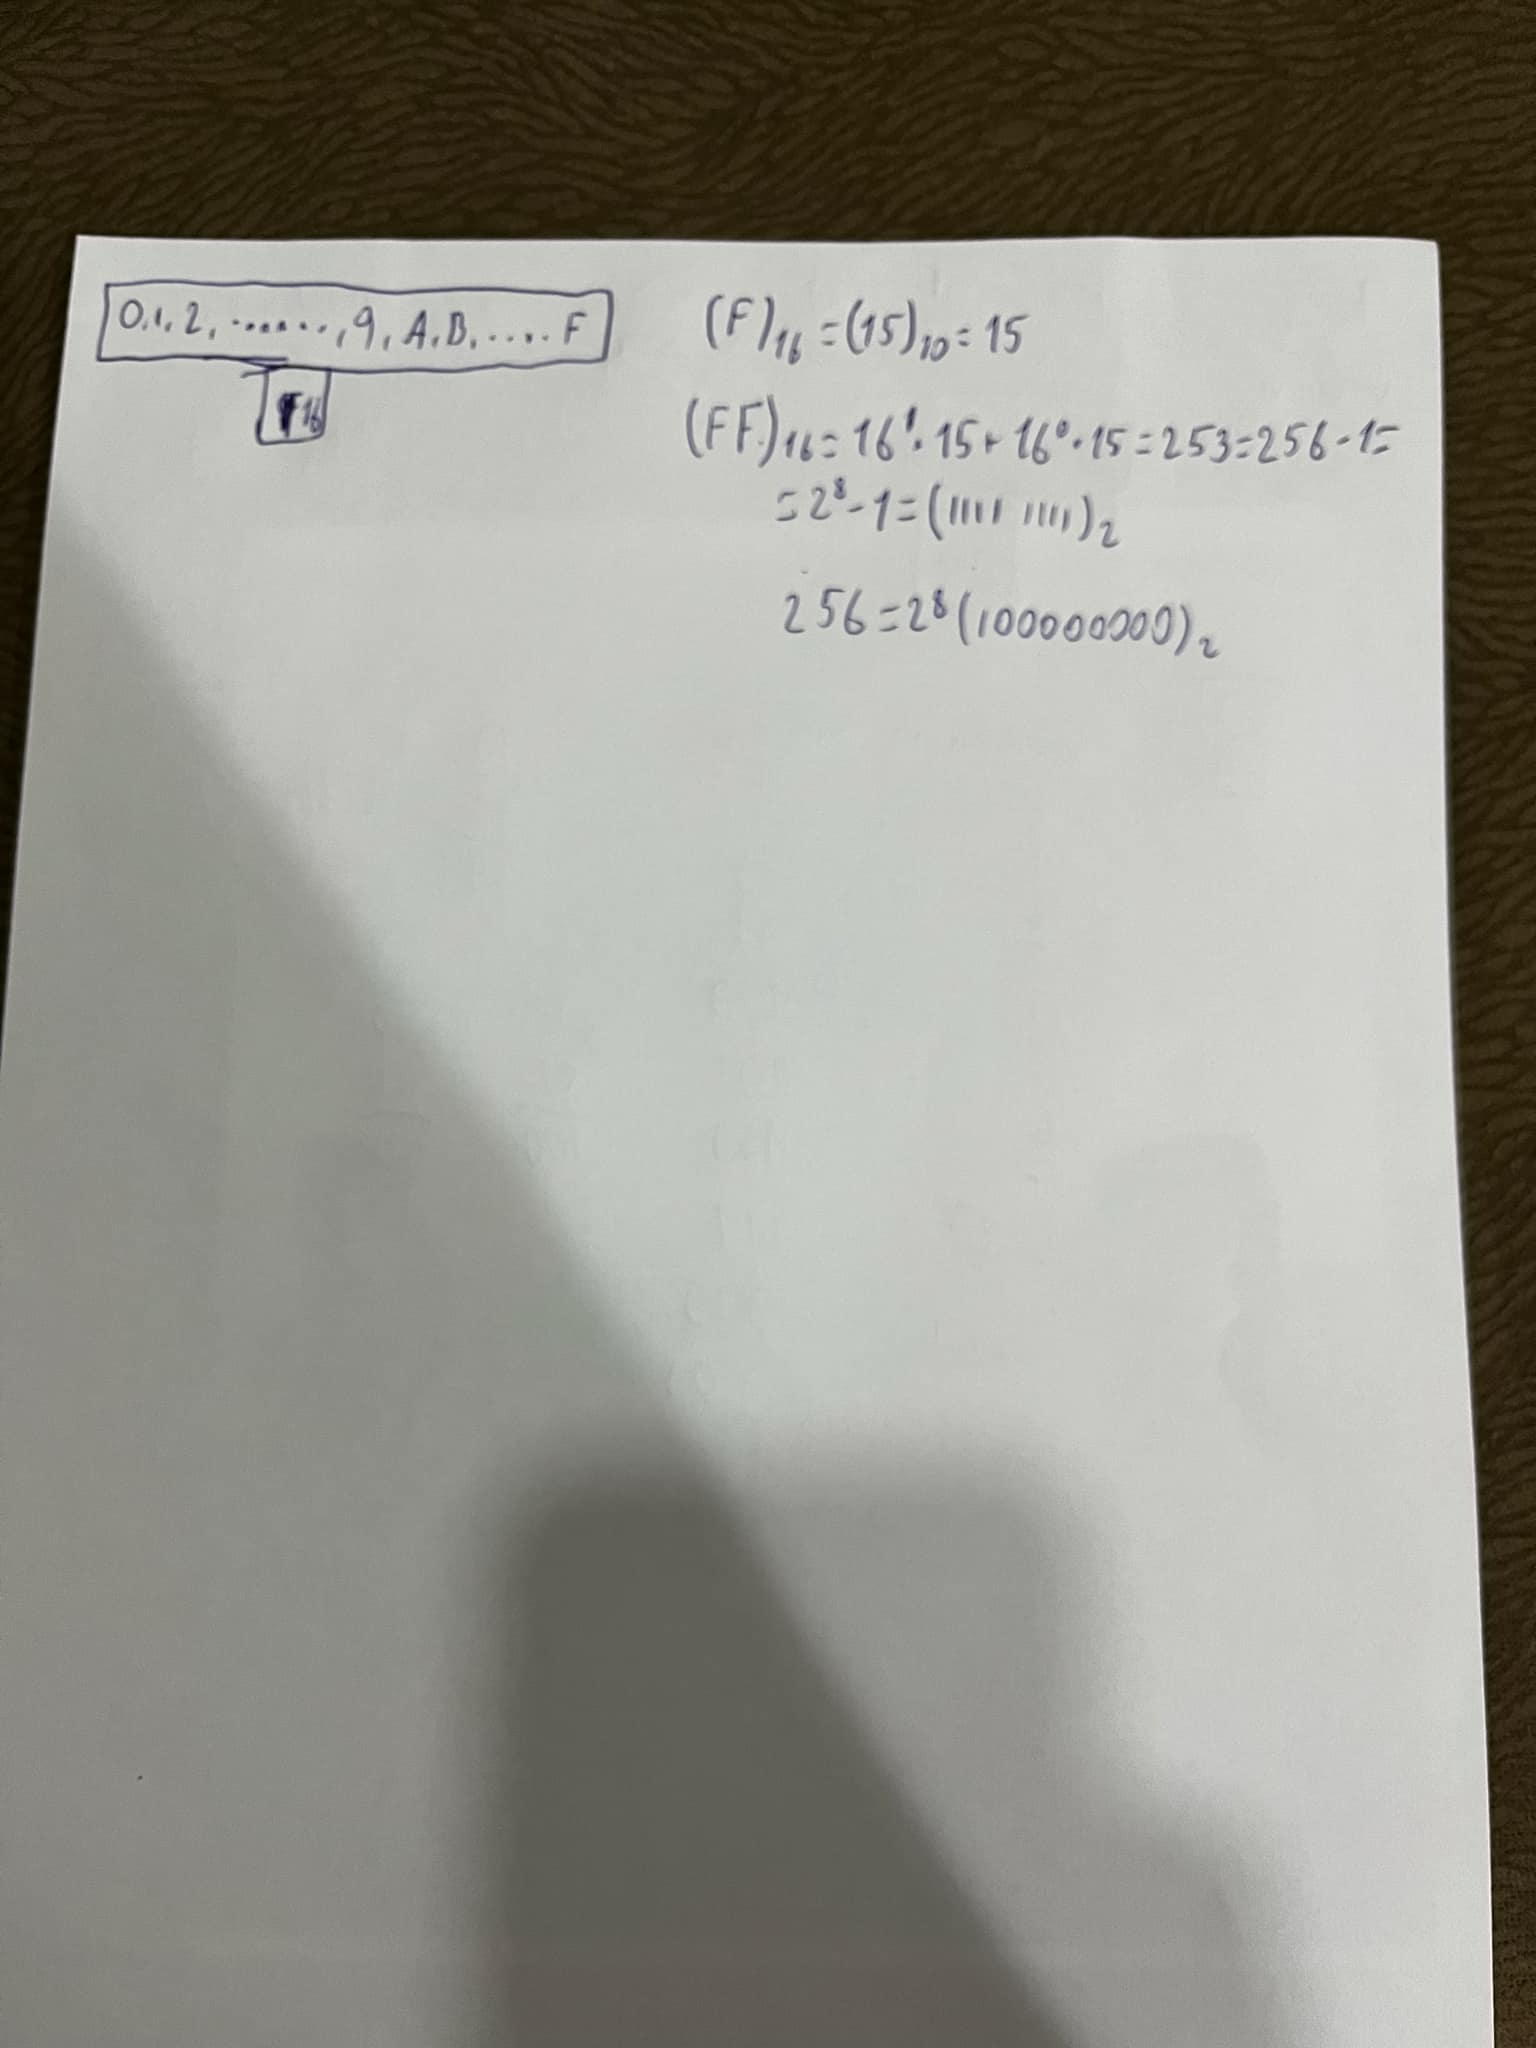 0,1,2,.......,9,A,B,.....F
16
(F)₁₆=(15)₁₀=15
(FF)₁₆=16¹·15+16⁰·15=253=256-1=
=2⁸-1=(1111 1111)₂
256=2⁸(100000000)₂